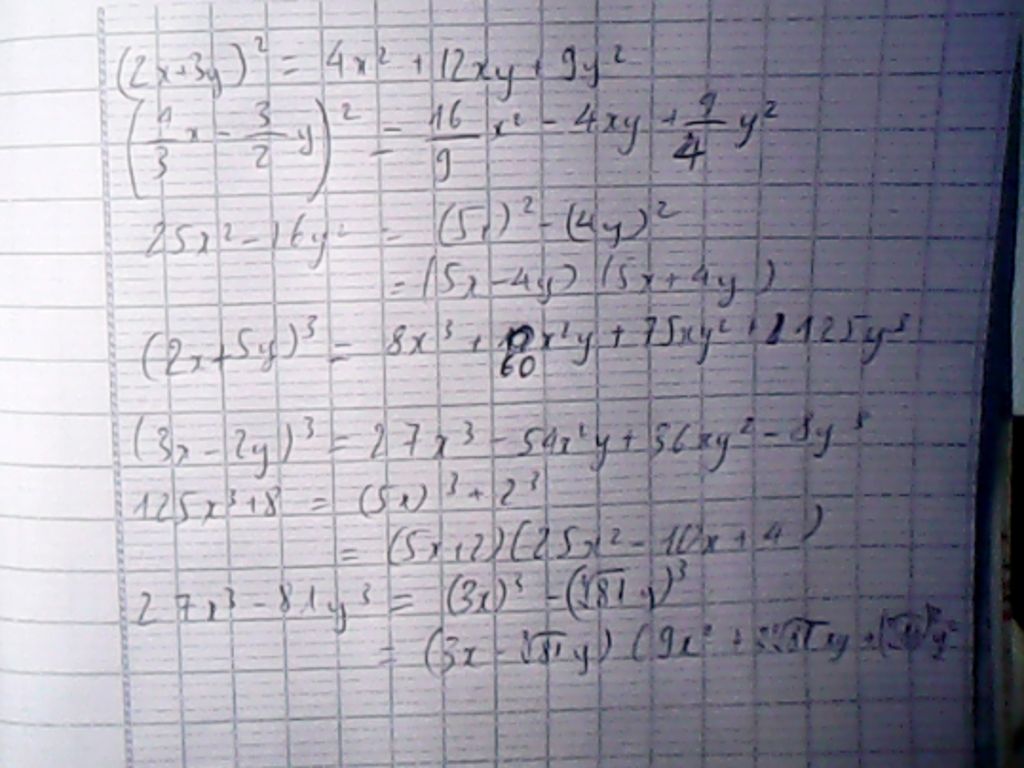 (2x+3y)² = 4x² + 12xy + 9y²
(4/3 x - 3/2 y)² = 16/9 x² - 4xy + 9/4 y²
25x² - 16y² = (5x)² - (4y)²
= (5x - 4y) (5x + 4y)
(2x+5y)³ = 8x³ + 60 x²y + 75xy² + 125y³
(3x - 2y)³ = 27x³ - 54x²y + 36xy² - 8y³
125x³+8 = (5x)³ + 2³
= (5x+2)(25x² - 10x + 4)
27x³ - 81y³ = (3x)³ - (∛81 y)³
= (3x - ∛81 y) (9x² + 3∛81 xy + (∛81)² y²